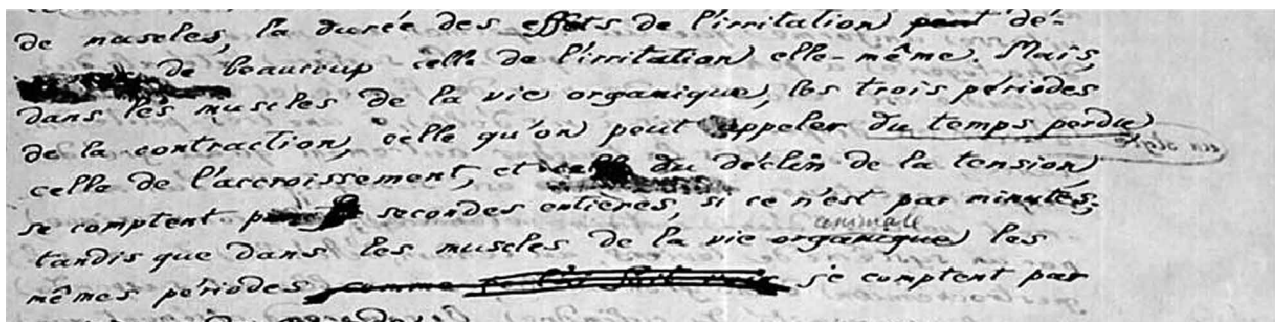 de muscles, la durée des effets de l'irritation peut dé-
de beaucoup celle de l'irritation elle-même. Mais,
dans les muscles de la vie organique, les trois périodes
de la contraction, celle qu'on peut appeler du temps perdu,
celle de l'accroissement, et celle du déclin de la tension,
se comptent par secondes entières, si ce n'est par minutes;
animale
tandis que dans les muscles de la vie organique les
mêmes périodes comme se comptent par